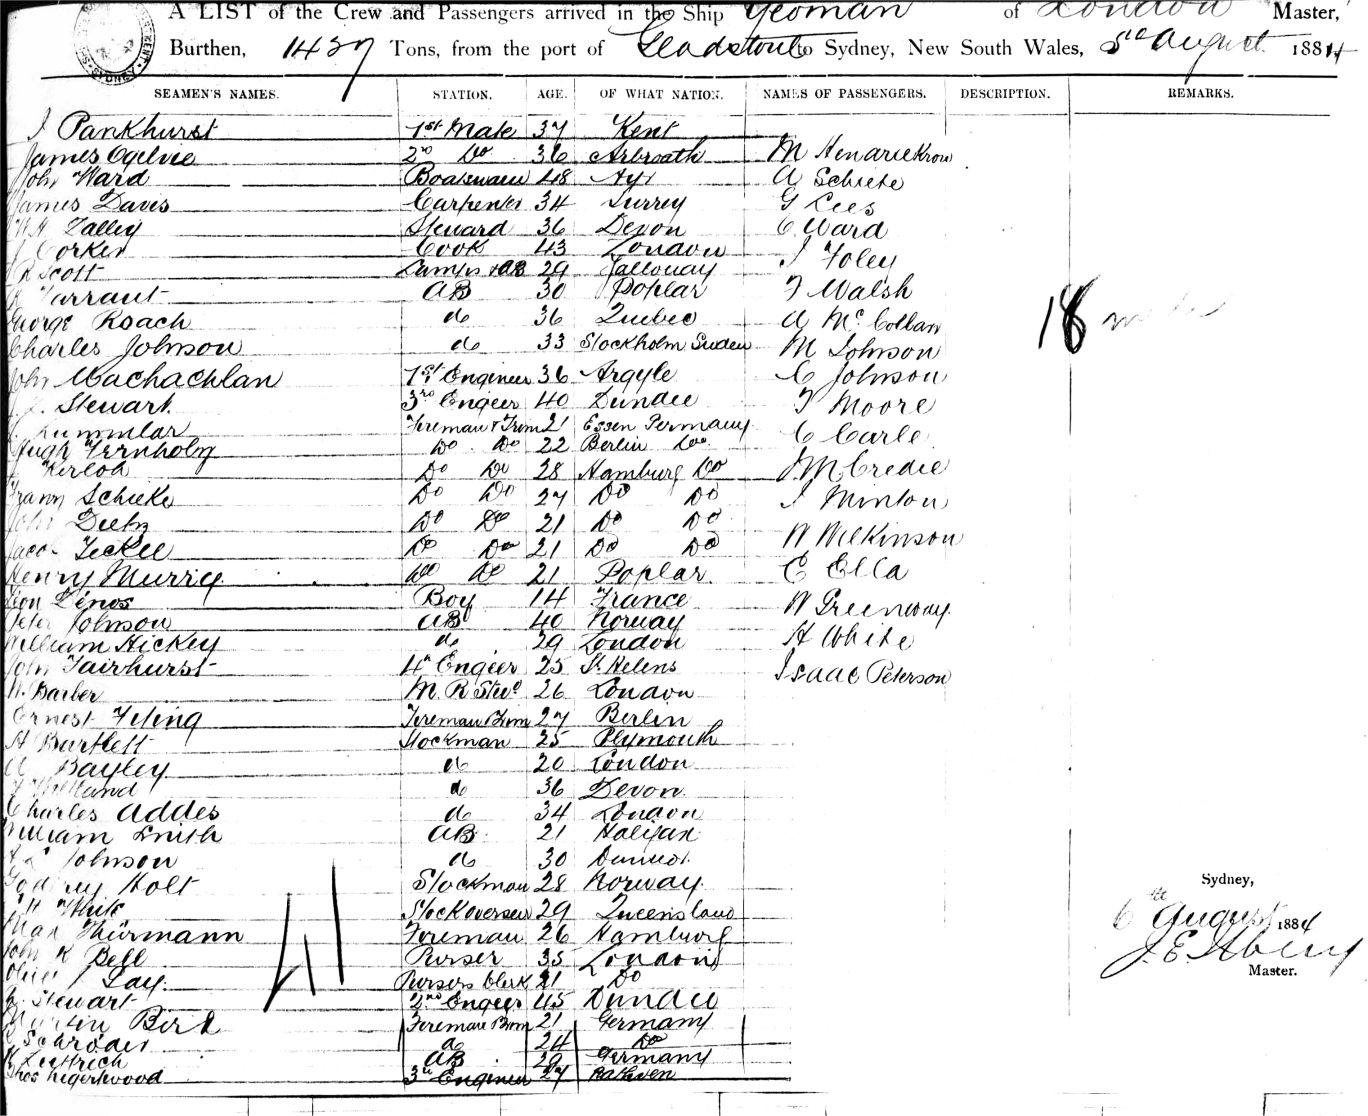 A LIST of the Crew and Passengers arrived in the Ship Yeoman of London Master,
Burthen, 1437 Tons, from the port of Gladstone to Sydney, New South Wales, 5th August 1884
SEAMEN'S NAMES. STATION. AGE. OF WHAT NATION. NAMES OF PASSENGERS. DESCRIPTION. REMARKS.
J Pankhurst 1st Mate 37 Kent
James Ogilvie 2nd Do 36 Arbroath M
John Ward Boatswain 48 Ayr A Schiete
James Davis Carpenter 34 Surrey G Lees
W.H. Talley Steward 36 Devon C Ward
J Corker Cook 43 London J Foley
Scott Lamps & AB 29 Galloway
Tarrant AB 30 Poplar F Walsh
George Roach do 36 Quebec A
Charles Johnson do 33 Stockholm Sweden M Johnson
John Machachlan 1st Engineer 36 Argyle C Johnson
Stewart 3rd Engeer 40 Dundee F Moore
Fireman & Trim 21 Essen Germany C Carle
Hugh Do Do 22 Berlin Do
Do Do 28 Hamburg Do J McCredie
Franz Schieke Do Do 27 Do Do J Minton
John Do Do 21 Do Do
Jacob Do Do 21 Do Do W Wilkinson
Henry Murrig Do Do 21 Poplar C Ella
Leon Boy 14 France W Greenway
Peter Johnson AB 40 Norway
William Hickey do 29 London H White
John Fairhurst 4th Engeer 25 St Helens Isaac Peterson
W. Barber M. R. Stewd 26 London
Ernest Feting Fireman Trim 27 Berlin
H Bartlett Stockman 25 Plymouth
Bayley do 20 London
do 36 Devon
Charles Addes do 34 London
William Smith AB 21 Halifax
Johnson do 30
Godfrey Holt Stockman 28 Norway
White Stock overseer 29 Queensland
Max Thürmann Fireman 26 Hamburg
John K Bell Purser 35 London
Lay Pursers Clerk 21 Do
Stewart 2nd Engeer 45 Dundee
Martin Bird Fireman Trim 21 Germany
Schröder do 24 Do
AB 29 Germany
Thos 3rd Engineer 27
18
41
Sydney,
6th August 1884
J. E.
Master.